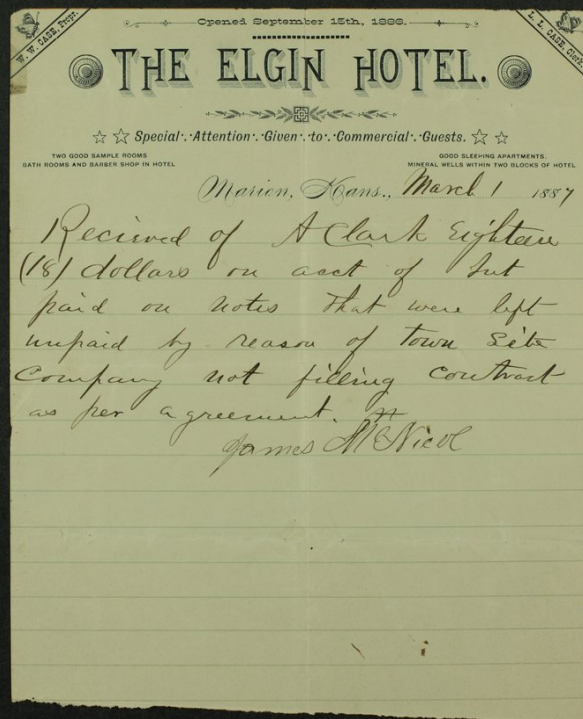 Opened September 15th, 1886.
W. W. CASE, Propr.
L. L. CASE, Clerk
THE ELGIN HOTEL.
Special Attention Given to Commercial Guests.
TWO GOOD SAMPLE ROOMS
BATH ROOMS AND BARBER SHOP IN HOTEL
GOOD SLEEPING APARTMENTS.
MINERAL WELLS WITHIN TWO BLOCKS OF HOTEL
Marion, Kans., March 1 1887
Recieved of A Clark Eighteen
(18) dollars on acct of Int
paid on notes that were left
unpaid by reason of town Site
Company not filling contract
as per agreement.
James McNicol